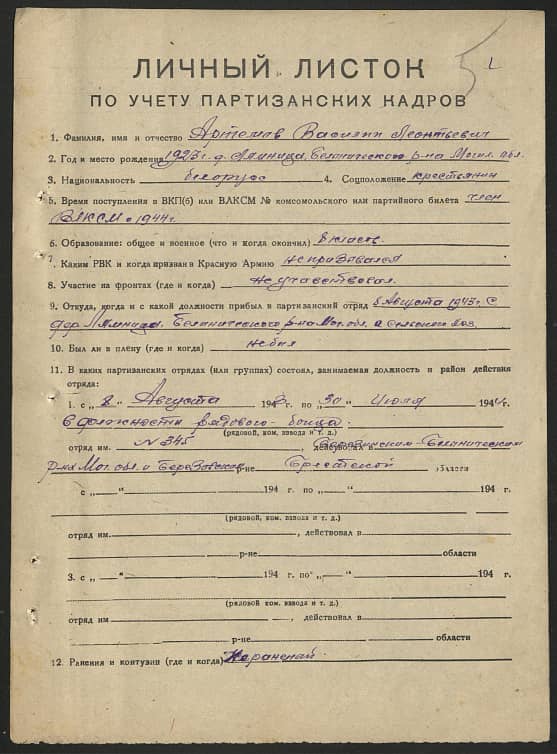 ЛИЧНЫЙ ЛИСТОК
ПО УЧЕТУ ПАРТИЗАНСКИХ КАДРОВ
1. Фамилия, имя и отчество Артемов Василий Леонтьевич
2. Год и место рождения 1923 г. д. Лямница, Белыничского р-на Могил. обл.
3. Национальность белорус 4. Соцположение крестьянин
5. Время поступления в ВКП(б) или ВЛКСМ № комсомольского или партийного билета член
ВЛКСМ с 1944 г.
6. Образование: общее и военное (что и когда окончил) 8 классов.
7. Каким РВК и когда призван в Красную Армию не призывался
8. Участие на фронтах (где и когда) не участвовал.
9. Откуда, когда и с какой должности прибыл в партизанский отряд 8 Августа 1943 г. с
дер. Лямница. Белыничского р-на Мог. обл.
10. Был ли в плену (где и когда) не был
11. В каких партизанских отрядах (или группах) состоял, занимаемая должность и район действия
отряда:
1. с „8“ Августа 1943 г. по „30“ Июля 1944 г.
в должности рядового-бойца.
(рядовой, ком. взвода и т. д.)
отряд им. N 345, действовал в Березинском-Белыничском
р-нах Мог. обл. и Березовском р-не Брестской области
с „ “ 194 г. по „ “ 194 г.
(рядовой, ком. взвода и т. д.)
отряд им. , действовал в
р-не области
3. с „ “ 194 г. по „ “ 194 г.
(рядовой, ком. взвода и т. д.)
отряд им. , действовал в
р-не области
12. Ранения и контузии (где и когда) Не раненый.